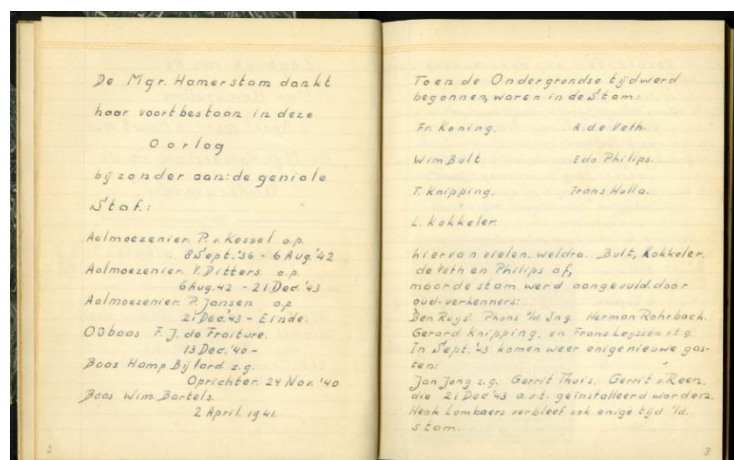 De Mgr. Hamerstam dankt
haar voortbestaan in deze
Oorlog
bijzonder aan: de geniale
Staf:
Aalmoezenier P. v. Kessel o.p.
8 Sept. '36 - 6 Aug. '42
Aalmoezenier V. Ditters o.p.
6 Aug. 42 - 21 Dec. '43
Aalmoezenier P. Jansen o.p.
21 Dec. '43 - Einde.
Oubaas F. J. de Fraiture.
13 Dec. '40 -
Baas Hamp Bijlard z.g.
Oprichter 24 Nov. '40
Baas Wim Bartels.
2 April 1941
2
Toen de Ondergrondse tijd werd
begonnen, waren in de Stam:
Fr. Koning. A. de Veth.
Wim Bult Edo Philips.
T. Knipping. Frans Holla.
L. Kokkeler.
hiervan vielen weldra Bult, Kokkeler,
de Veth en Philips af,
maar de stam werd aangevuld door
oud-verkenners:
Ben Ruys. Phons Herman Rohrbach.
Gerard Knipping, en Frans Leyssen
In Sept. '43 kamen weer enige nieuwe gas-
ten:
Jan Jong z.g. Gerrit Thuis, Gerrit v. Reen.
die 21 Dec '43 a.v.t. geïnstalleerd worden.
Henk Lombaers verbleef ook enige tijd i/d.
stam.
3